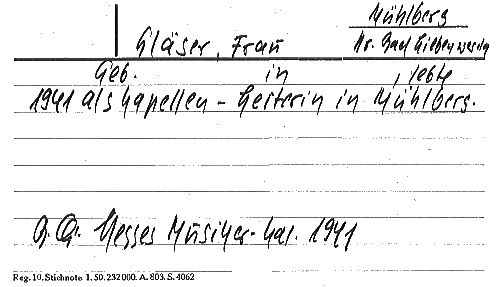 Mühlberg
Gläser, Frau Kr. Bad Liebenwerda
Geb. in , lebte
1941 als Kapellen-Leiterin in Mühlberg.
Q. Hesses Musiker-Kal. 1941
Reg. 10. Stichnote 1. 50. 232000. A. 803. S. 4062